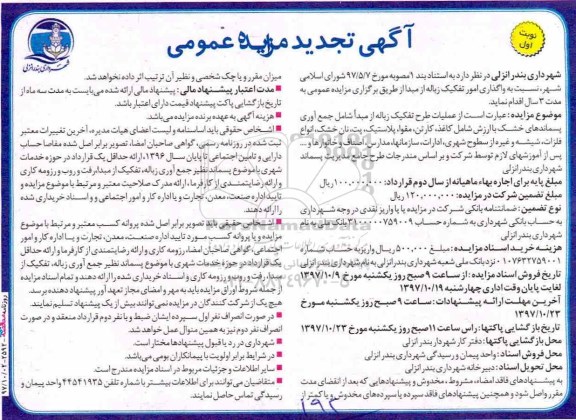 آگهی تجدید مزایده عمومی
نوبت اول
شهرداری بندرانزلی
شهرداری بندر انزلی در نظر دارد به استناد بند ۱ مصوبه مورخ ۹۷/۵/۷ شورای اسلامی
شهر، نسبت به واگذاری امور تفکیک زباله از مبدأ از طریق برگزاری مزایده عمومی به
مدت ۳ سال اقدام نماید.
موضوع مزایده: عبارت است از عملیات طرح تفکیک زباله از مبدأ شامل جمع آوری
پسماندهای خشک با ارزش شامل کاغذ، کارتن، مقوا، پلاستیک، پت، نان خشک، انواع
فلزات، شیشه و غیره از سطوح شهری، ادارات، سازمانها، مدارس
پس از آموزشهای لازم توسط شرکت و بر اساس مندرجات طرح پسماند
شهرداری بندر انزلی
مبلغ پایه برای اجاره بهاء ماهیانه از سال دوم قرارداد: ۱۰۰,۰۰۰,۰۰۰ ریال
مبلغ تضمین شرکت در مزایده: ۱۲۰,۰۰۰,۰۰۰ ریال
نوع تضمین: ضمانتنامه بانکی شرکت در مزایده یا واریز نقدی در وجه شهرداری
به حساب بانکی شهرداری به شماره حساب
شهرداری بندر انزلی
هزینه خرید اسناد مزایده: مبلغ ۵۰۰,۰۰۰ ریال واریز به حساب شماره
۰۱۰۷۶۳۲۷۵۹۰۰۱ نزد بانک ملی شعبه شهرداری بندرانزلی به نام شهرداری بندر انزلی
تاریخ فروش اسناد مزایده: از ساعت ۹ صبح روز یکشنبه مورخ ۱۳۹۷/۱۰/۹
لغایت پایان وقت اداری چهارشنبه ۱۳۹۷/۱۰/۱۹
آخرین مهلت ارائه پیشنهادات: ساعت ۹ صبح روز یکشنبه مورخ
۱۳۹۷/۱۰/۲۳
تاریخ بازگشایی پاکتها: راس ساعت ۱۱ صبح روز یکشنبه مورخ ۱۳۹۷/۱۰/۲۳
محل بازگشایی پاکتها: دفتر کار شهردار بندر انزلی
محل فروش اسناد: واحد پیمان و رسیدگی شهرداری بندر انزلی
محل تحویل اسناد: دبیرخانه شهرداری بندر انزلی
به پیشنهادهای فاقد امضاء، مشروط، مخدوش و پیشنهادهایی که بعد از انقضای مدت
مقرر واصل شود و همچنین پیشنهادهای فاقد سپرده یا سپرده‌های مخدوش و یا کمتر از
میزان مقرر و یا چک شخصی و نظیر آن ترتیب اثر داده نخواهد شد.
مدت اعتبار پیشنهاد مالی: پیشنهاد مالی ارائه شده می‌بایست به مدت سه ماه از
تاریخ بازگشایی پاکت پیشنهاد قیمت دارای اعتبار باشد.
هزینه آگهی به عهده برنده مزایده می‌باشد.
اشخاص حقوقی باید اساسنامه و لیست اعضای هیات مدیره، آخرین تغییرات معتبر
ثبت شده در روزنامه رسمی، گواهی صاحبان امضا، تصویر برابر اصل شده مفاصا حساب
دارایی و تامین اجتماعی تا پایان سال ۱۳۹۶، ارائه حداقل یک قرارداد در حوزه خدمات
شهری با موضوع پسماند نظیر جمع آوری زباله، تفکیک از مبدا، رفت و روب و رزومه کاری
و ارائه رضایتمندی از کارفرما، ارائه مدرک صلاحیت معتبر و مرتبط با موضوع مزایده و
تاییدیه اداره صنعت، معدن، تجارت و یا اداره کار و امور اجتماعی و اسناد خریداری شده
را ارائه دهند.
اشخاص حقیقی تصویر برابر اصل شده پروانه کسب معتبر و مرتبط با موضوع
مزایده و یا پروانه کسب مورد تایید اداره صنعت، معدن، تجارت و یا اداره کار و امور
اجتماعی، گواهی صاحبان امضا، رزومه کاری و ارائه رضایتمندی از کارفرما و ارائه حداقل
یک قرارداد در حوزه خدمات شهری با موضوع پسماند نظیر جمع آوری زباله، تفکیک از
مبدا، رفت و روب و رزومه کاری و اسناد خریداری شده را ارائه دهند و تمام اسناد مزایده
از جمله شروط اوراق مزایده باید به مهر و امضای مجاز تعهد آور پیشنهاد دهنده برسد.
هیچ یک از شرکت کنندگان در مزایده نمی‌توانند بیش از یک پیشنهاد تسلیم نمایند.
در صورت انصراف نفر اول سپرده ایشان ضبط و با نفر دوم قرارداد منعقد و در صورت
انصراف نفر دوم نیز به همین منوال عمل خواهد شد.
شهرداری در رد یا قبول پیشنهادها مختار است.
در شرایط برابر اولویت با پیمانکاران بومی می‌باشد.
سایر اطلاعات و جزئیات مربوط در اسناد مزایده مندرج است.
متقاضیان می‌توانند برای اطلاعات بیشتر با شماره تلفن ۴۴۵۴۱۹۳۵ واحد پیمان و
رسیدگی تماس حاصل نمایند.